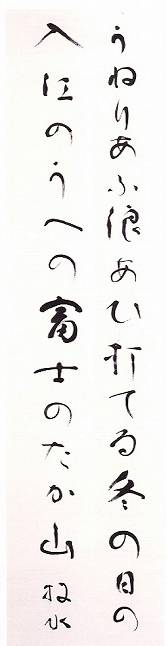 うねりあふ浪あひ打てる冬の日の
入江のうへの富士のたか山 牧水